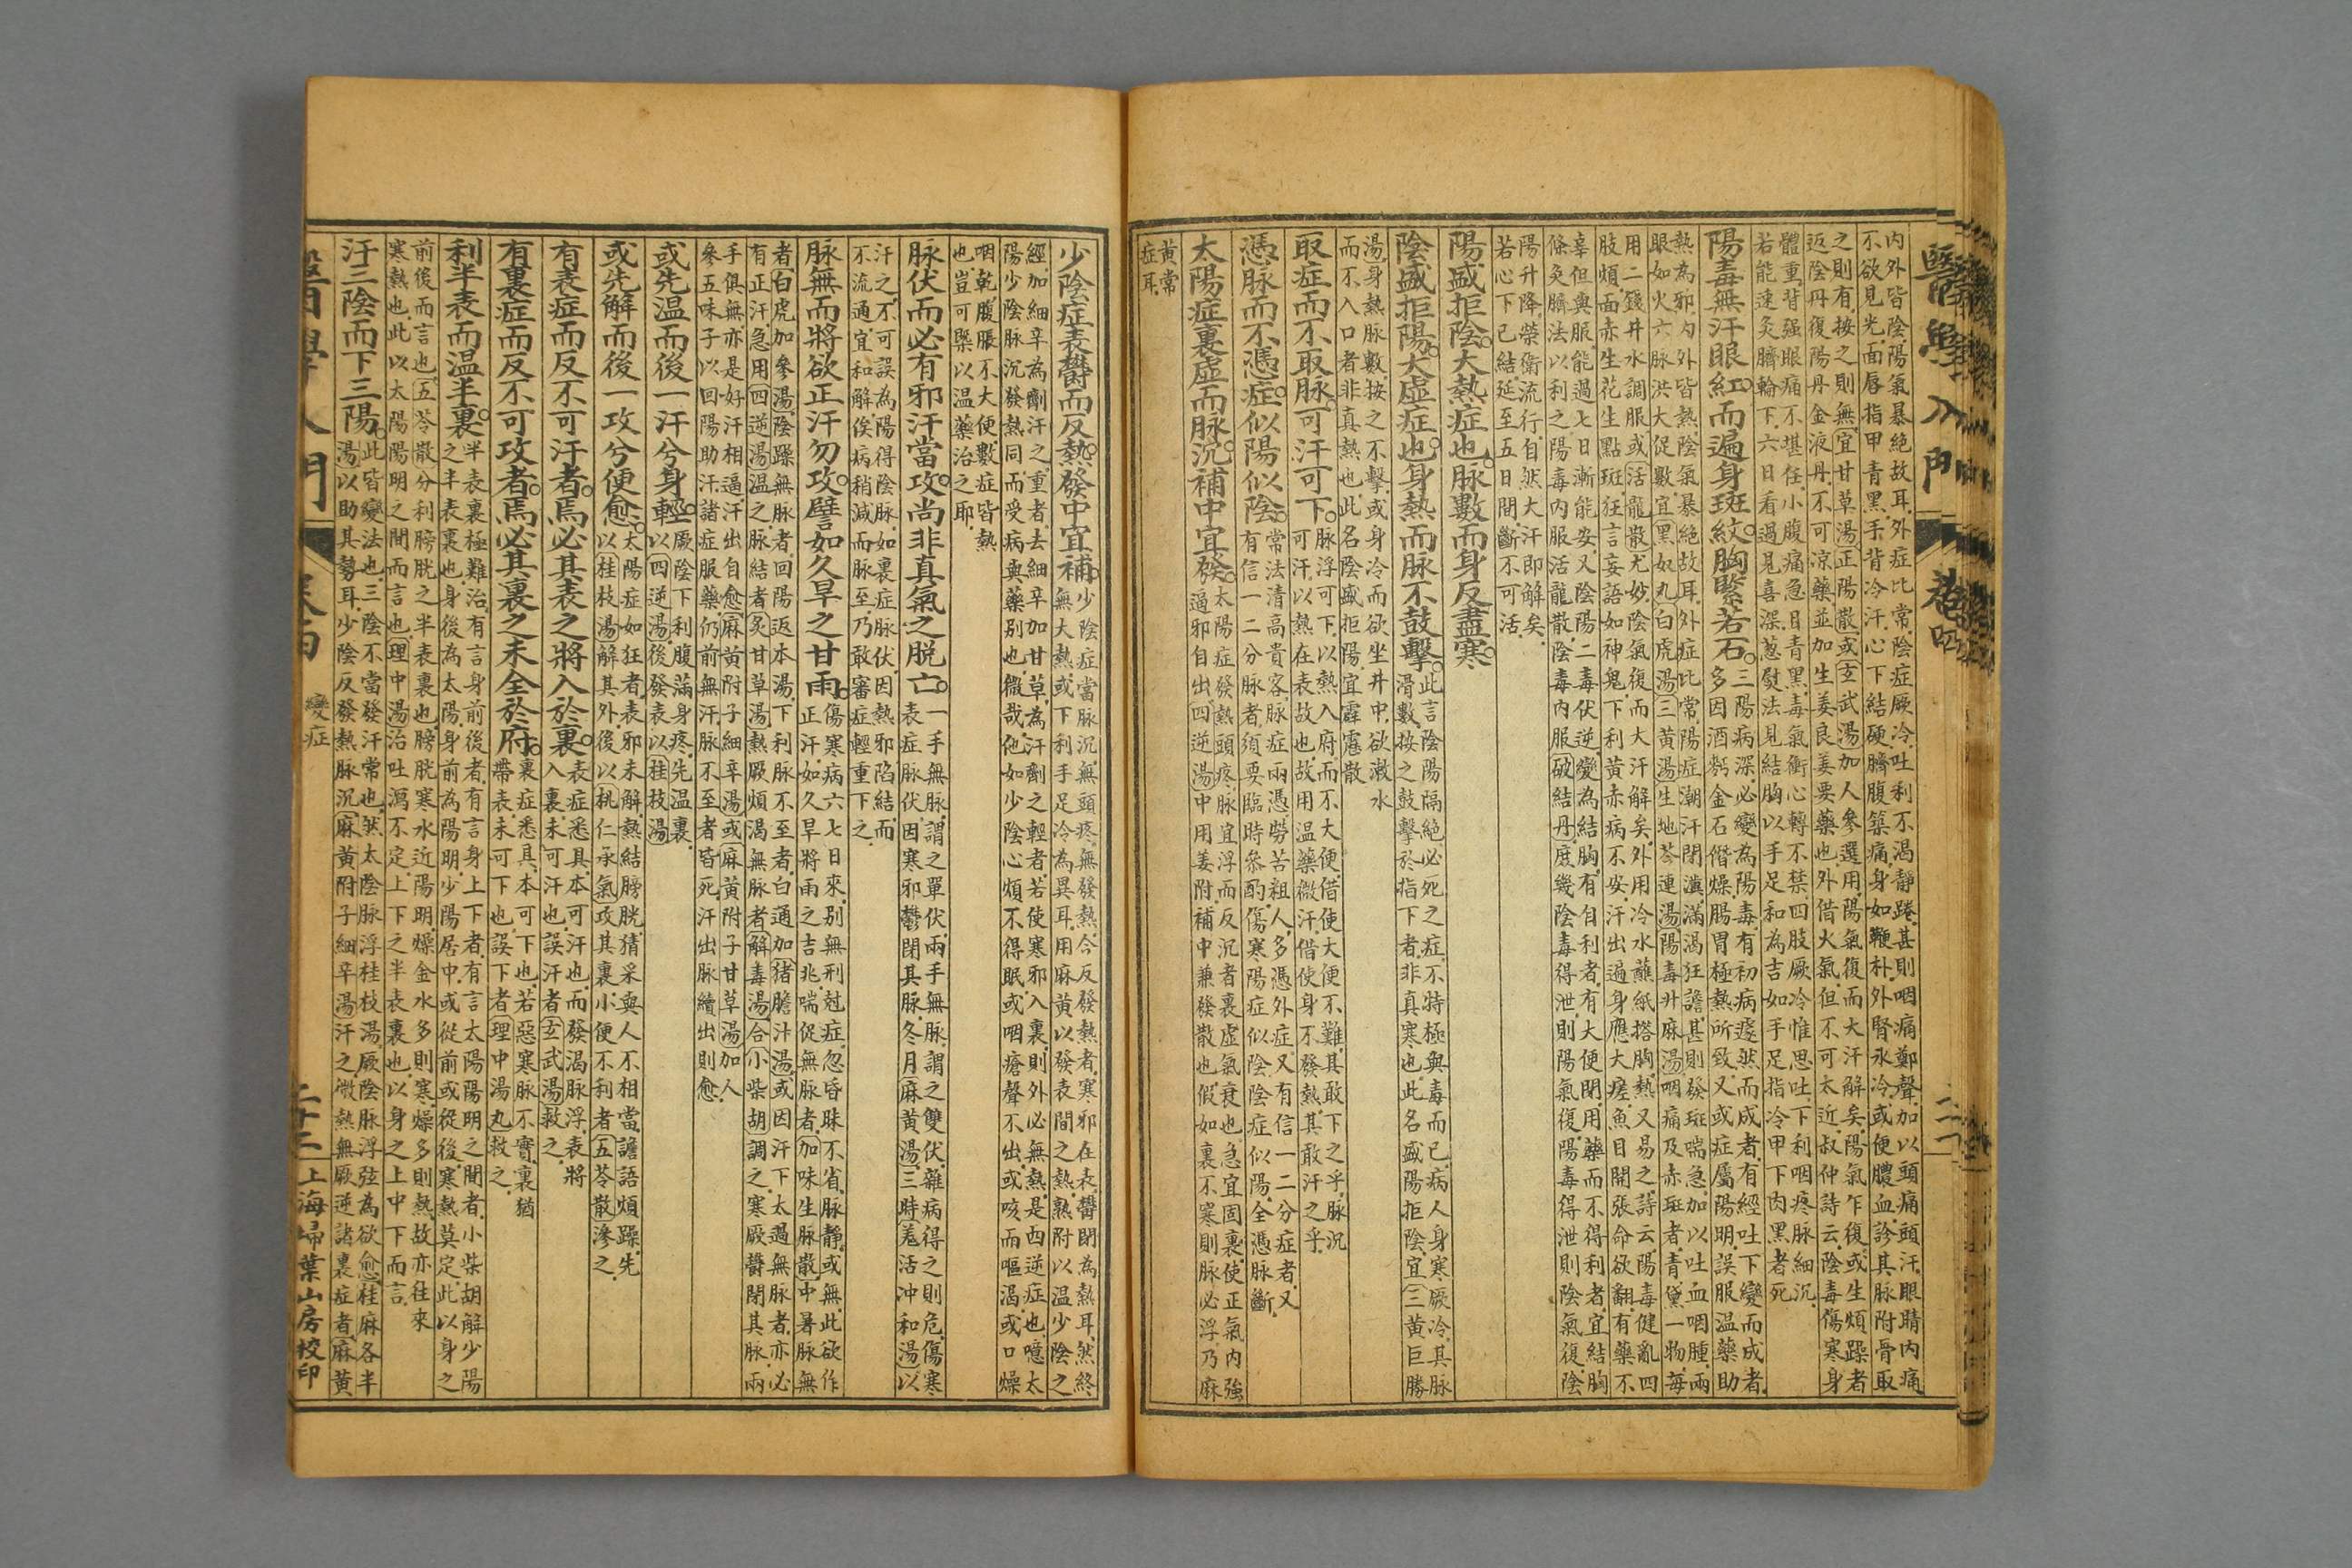 醫學入門 卷四
內外皆陰陽氣暴絶故耳外症比常陰症厥冷吐利不渴靜踡甚則咽痛鄭聲加以頭痛頭汗眼睛內痛
不欲見光面唇指甲青黑手背冷汗心下結硬臍腹築痛身如鞭朴外腎氷冷或便膿血診其脉附骨取
之則有按之則無宜甘草湯正陽散或玄武湯加人參選用陽氣復而大汗解矣陽氣乍復或生煩躁者
返陰丹復陽丹金液丹不可凉藥並加生姜良姜要藥也外借火氣但不可太近叔仲詩云陰毒傷寒身
體重背强眼痛不堪任小腹痛急口青黑毒氣衝心轉不禁四肢厥冷惟思吐下利咽疼脉細沉
若能速灸臍輪下六日看過見喜深葱熨法見結胸以手足和為吉如手足指冷甲下肉黑者死
陽毒無汗眼紅而遍身斑紋胸緊若石
三陽病深必變為陽毒有初病遽然而成者有經吐下變而成者
多因酒麪金石僭燥腸胃極熱所致又或症屬陽明誤服溫藥助
熱為邪內外皆熱陰氣暴絶故耳外症比常陽症潮汗閉瀆滿渴狂譫甚則發斑喘急加以吐血咽腫兩
眼如火六脉洪大促數宜黑奴丸白虎湯三黃湯生地芩連湯陽毒升麻湯咽痛及赤斑者青黛一物每
用二錢井水調服或活龍散尤妙陰氣復而大汗解矣外用冷水蘸紙搭胸熱又易之詩云陽毒健亂四
肢煩面赤生花生點斑狂言妄語如神鬼下利黃赤病不安汗出遍身應大瘥魚目開張命欲翻有藥不
辜但與服能過七日漸能安又陰陽二毒伏逆變為結胸有自利者有大便閉用藥而不得利者宜結胸
條灸臍法以利之陽毒內服活龍散陰毒內服破結丹庶幾陰毒得泄則陽氣復陽毒得泄則陰氣復陰
陽升降榮衛流行自然大汗即解矣
若心下已結延至五日間斷不可活
陽盛拒陰大熱症也脉數而身反盡寒
陰盛拒陽大虛症也身熱而脉不鼓擊
此言陰陽隔絶必死之症不特極與毒而已病人身寒厥冷其脉
滑數按之鼓擊於指下者非真寒也此名盛陽拒陰宜三黃巨勝
湯身熱脉數按之不擊或身冷而欲坐井中欲漱水
而不入口者非真熱也此名陰盛拒陽宜霹靂散
取症而不取脉可汗可下
脉浮可下以熱入府而不大便借使大便不難其敢下之乎脉沉
可汗以熱在表故也故用溫藥微汗借使身不發熱其敢汗之乎
憑脉而不憑症似陽似陰
常法清高貴客脉症兩憑勞苦粗人多憑外症又有信一二分症者又
有信一二分脉者須要臨時叅酌傷寒陽症似陰陰症似陽全憑脉斷
太陽症裏虛而脉沉補中宜發
太陽症發熱頭疼脉宜浮而反沉者裏虛氣衰也急宜固裏使正氣內强
逼邪自出四逆湯中用姜附補中兼發散也假如裏不寒則脉必浮乃麻
黃常
症耳
少陰症表鬱而反熱發中宜補
少陰症當脉沉無頭疼無發熱今反發熱者寒邪在表鬱閉為熱耳然終
無大熱或下利手足冷為異耳用麻黃以發表間之熱熟附以溫少陰之
經加細辛為劑汗之重者去細辛加甘草為汗劑之輕者若使寒邪入裏則外必無熱是西逆症也噫太
陽少陰脉沉發熱同而受病與藥別也微哉他如少陰心煩不得眠或咽瘡聲不出或咳而嘔渴或口燥
咽乾腹脹不大便數症皆熱
也豈可槩以溫藥治之耶
脉伏而必有邪汗當攻尚非真氣之脱亡
一手無脉謂之單伏兩手無脉謂之雙伏雜病得之則危傷寒
表症脉伏因寒邪鬱閉其脉冬月麻黃湯三時羗活冲和湯以
汗之不可誤為陽得陰脉如裏症脉伏因熱邪陷結而
不流通宜和解俟病稍減而脉至乃敢審症輕重下之
脉無而將欲正汗勿攻譬如久旱之甘雨
傷寒病六七日來別無刑尅症忽昏昧不省脉靜或無此欲作
正汗如久旱將雨之吉兆喘促無脉者加味生脉散中暑脉無
者白虎加參湯陰躁無脉者回陽返本湯下利脉不至者白通加猪膽汁湯或因汗下太過無脉者亦必
有正汗急用四逆湯溫之脉結者炙甘草湯熱厥煩渴無脉者解毒湯合小柴胡調之寒厥鬱閉其脉兩
手俱無亦是好汗相逼汗出自愈麻黃附子細辛湯或麻黃附子甘草湯加人
參五味子以回陽助汗諸症服藥仍前無汗脉不至者皆死汗出脉續出則愈
或先溫而後一汗兮身輕
厥陰下利腹滿身疼先溫裏
以四逆湯後發表以桂枝湯
或先解而後一攻兮便愈
太陽症如狂者表邪未解熱結膀胱猜采與人不相當譫語煩躁先
以桂枝湯解其外後以桃仁承氣攻其裏小便不利者五苓散滲之
有表症而反不可汗者焉必其表之將入於裏
表症悉具本可汗也而發渴脉浮表將
入裏未可汗也誤汗者玄武湯救之
有裏症而反不可攻者焉必其裏之未全於府
裏症悉具本可下也若惡寒脉不實裏猶
帶表未可下也誤下者理中湯丸救之
利半表而溫半裏
半表裏極難治有言身前後者有言身上下者有言太陽陽明之間者小柴胡解少陽
之半表半表裏也身後為太陽身前為陽明少陽居中或從前或從後寒熱莫定此以身之
前後而言也五苓散分利膀胱之半表裏也膀胱寒水近陽明燥金水多則寒燥多則熱故亦往來
寒熱也此以太陽陽明之間而言也理中湯治吐瀉不定上下之半表裏也以身之上中下而言
汗三陰而下三陽
此皆變法也三陰不當發汗常也然太陰脉浮桂枝湯厥陰脉浮弦為欲愈桂麻各半
湯以助其勢耳少陰反發熱脉沉麻黃附子細辛湯汗之微熱無厥逆諸裏症者麻黃
醫學入門 變症 二十二 上海埽葉山房校印